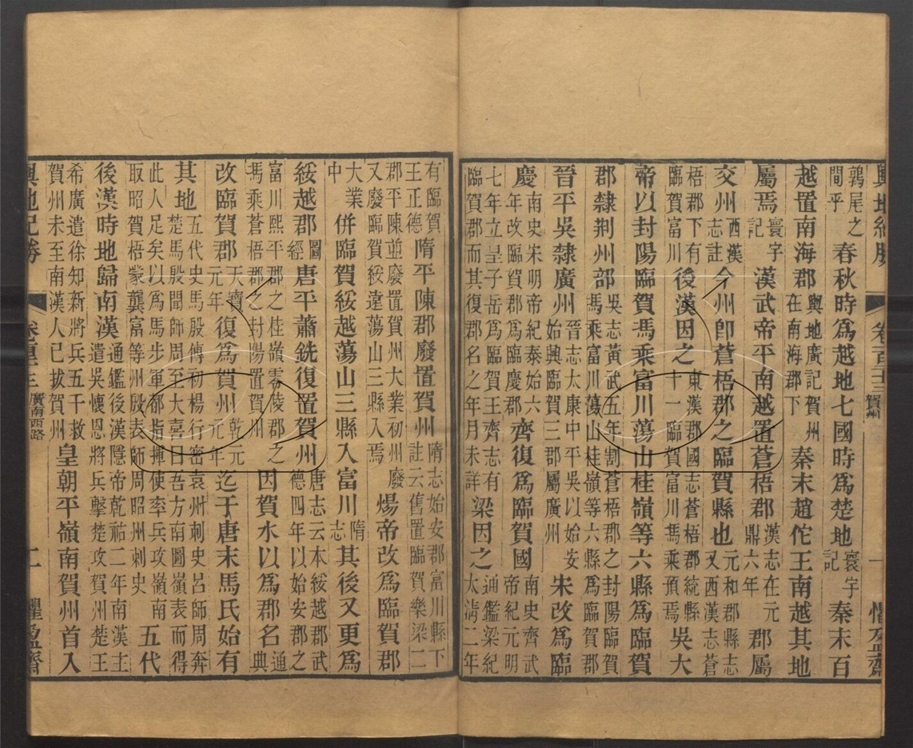 輿地紀勝 卷百二十三 賀州 一 懼盈齋
鶉尾之間乎春秋時爲越地七國時爲楚地寰宇記秦末百
越置南海郡輿地廣記賀州在南海郡秦末趙佗王南越其地
屬焉寰宇記漢武帝平南越置蒼梧郡漢志在元鼎六年郡屬
交州西漢志註今州卽蒼梧郡之臨賀縣也元和郡縣志又西漢志蒼
梧郡下有臨賀富川後漢因之東漢郡國志蒼梧郡統縣十一臨賀富川馮乘預焉吳大
帝以封陽臨賀馮乘富川蕩山桂嶺等六縣爲臨賀
郡隸荆州部吳志黃武五年割蒼梧郡之封陽臨賀馮乘富川蕩山桂嶺等六縣爲臨賀郡
晉平吳隸廣州晉志太康中平吳以始安始興臨賀三郡屬廣州宋改爲臨
慶南史宋明帝紀泰始六年改臨賀郡爲臨慶郡齊復爲臨賀國南史齊武帝紀元明
七年立皇子岳爲臨賀王齊志有臨賀郡而其復郡名之年月未詳梁因之通鑑梁紀太淸二年
有臨賀王正德隋平陳郡廢置賀州隋志始安郡富川縣下註云舊置臨賀樂梁二
郡平陳並廢置賀州大業初州廢又廢臨賀綏越蕩山三縣入焉煬帝改爲臨賀郡
大業中併臨賀綏越蕩山三縣入富川隋志其後又更爲
綏越郡圖經唐平蕭銑復置賀州唐志云本綏越郡武德四年以始安郡之
富川熙平郡之桂嶺零陵郡之馮乘蒼梧郡之封陽置賀州因賀水以爲郡名通典
改臨賀郡天寶元年復爲賀州乾元元年迄于唐末馬氏始有
其地五代史馬殷傳初楊行密袁州刺史呂師周奔楚馬殷聞師周至大喜曰吾方南圖嶺表而得
此人足矣以爲馬步軍都指揮使率兵攻嶺南取昭賀梧蒙龔富等州殷表師周昭州刺史五代
後漢時地歸南漢通鑑後漢隱帝乾祐二年南漢主遣吳懷恩將兵擊楚攻賀州楚王
希廣遣徐知新將兵五千救賀州未至南漢人已拔賀州皇朝平嶺南賀州首入
輿地紀勝 卷百二十三 廣南西路 二 懼盈齋